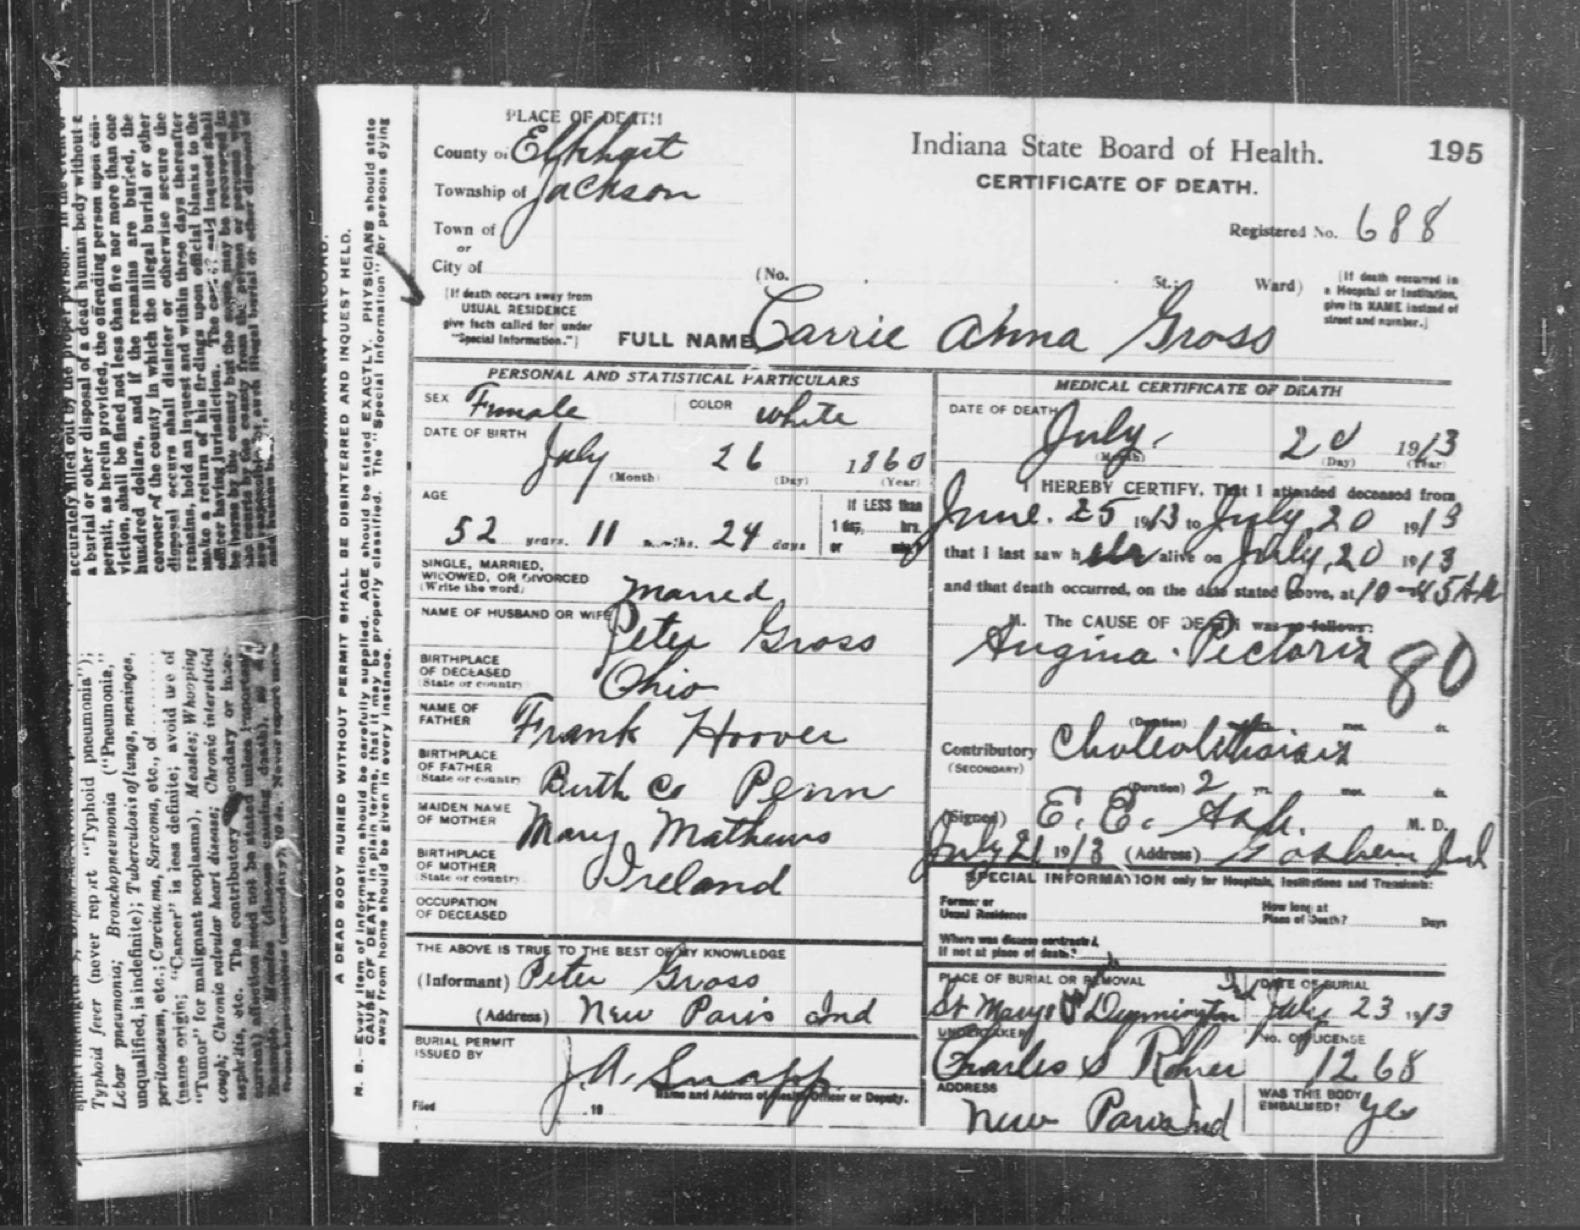 PLACE OF DEATH
County of Elkhart
Township of Jackson
Town of
or
City of
[If death occurs away from
USUAL RESIDENCE
give facts called for under
"Special Information."]
Indiana State Board of Health.
195
CERTIFICATE OF DEATH.
Registered No. 688
(No.
St.;
Ward)
[If death occurred in
a Hospital or Institution,
give its NAME instead of
street and number.]
FULL NAME Carrie Anna Gross
PERSONAL AND STATISTICAL PARTICULARS
SEX Female
COLOR White
DATE OF BIRTH
July 26 1860
(Month) (Day) (Year)
AGE
52 years. 11 months. 24 days
If LESS than
1 day, hrs.
or min?
SINGLE, MARRIED,
WIDOWED, OR DIVORCED
(Write the word) Married
NAME OF HUSBAND OR WIFE
Peter Gross
BIRTHPLACE
OF DECEASED
(State or country) Ohio
NAME OF
FATHER Frank Hoover
BIRTHPLACE
OF FATHER
(State or country) Co Penn
MAIDEN NAME
OF MOTHER Mary Mathews
BIRTHPLACE
OF MOTHER
(State or country) Ireland
OCCUPATION
OF DECEASED
THE ABOVE IS TRUE TO THE BEST OF MY KNOWLEDGE
(Informant) Peter Gross
(Address) New Paris Ind
BURIAL PERMIT
ISSUED BY
J. A. Snapp
Name and Address of Health Officer or Deputy.
Filed .19
MEDICAL CERTIFICATE OF DEATH
DATE OF DEATH
July. 20 1913
(Month) (Day) (Year)
I HEREBY CERTIFY, That I attended deceased from
June. 25 1913 to July, 20 1913
that I last saw her alive on July, 20 1913
and that death occurred, on the date stated above, at 10-45 AM
M. The CAUSE OF DEATH was as follows:
Angina Pectoris 80
(Duration) yrs. mos. ds.
Contributory
(SECONDARY)
(Duration) 2 yrs. mos. ds.
(Signed) E. E. M. D.
July 21 1913 (Address) Goshen Ind
SPECIAL INFORMATION only for Hospitals, Institutions and Transients:
Former or
Usual Residence
How long at
Place of Death? Days
Where was disease contracted,
If not at place of death?
PLACE OF BURIAL OR REMOVAL
St Marys
DATE OF BURIAL
July 23 1913
UNDERTAKER
Charles S Rohrer
No. OF LICENSE
1268
ADDRESS
New Paris Ind
WAS THE BODY
EMBALMED? yes
A DEAD BODY BURIED WITHOUT PERMIT SHALL BE DISINTERRED AND INQUEST HELD.
N. B.—Every item of information should be carefully supplied. AGE should be stated EXACTLY. PHYSICIANS should state
CAUSE OF DEATH in plain terms, that it may be properly classified. The "Special Information" for persons dying
away from home should be given in every instance.
a burial or other disposal of a dead human body without a
permit, as herein provided, the offending person upon con-
viction, shall be fined not less than five nor more than one
hundred dollars, and if the remains are buried, the
coroner of the county in which the illegal burial or other
disposal occurs shall disinter or otherwise secure the
remains, hold an inquest and within three days thereafter
make a return of his findings upon official blanks to the
officer having jurisdiction.
Typhoid fever (never report "Typhoid pneumonia");
Lobar pneumonia; Bronchopneumonia ("Pneumonia,"
unqualified, is indefinite); Tuberculosis of lungs, meninges,
peritonaeum, etc.; Carcinoma, Sarcoma, etc., of
(name origin; "Cancer" is less definite; avoid use of
"Tumor" for malignant neoplasms), Measles; Whooping
cough; Chronic valvular heart disease; Chronic interstitial
nephritis, etc. The contributory